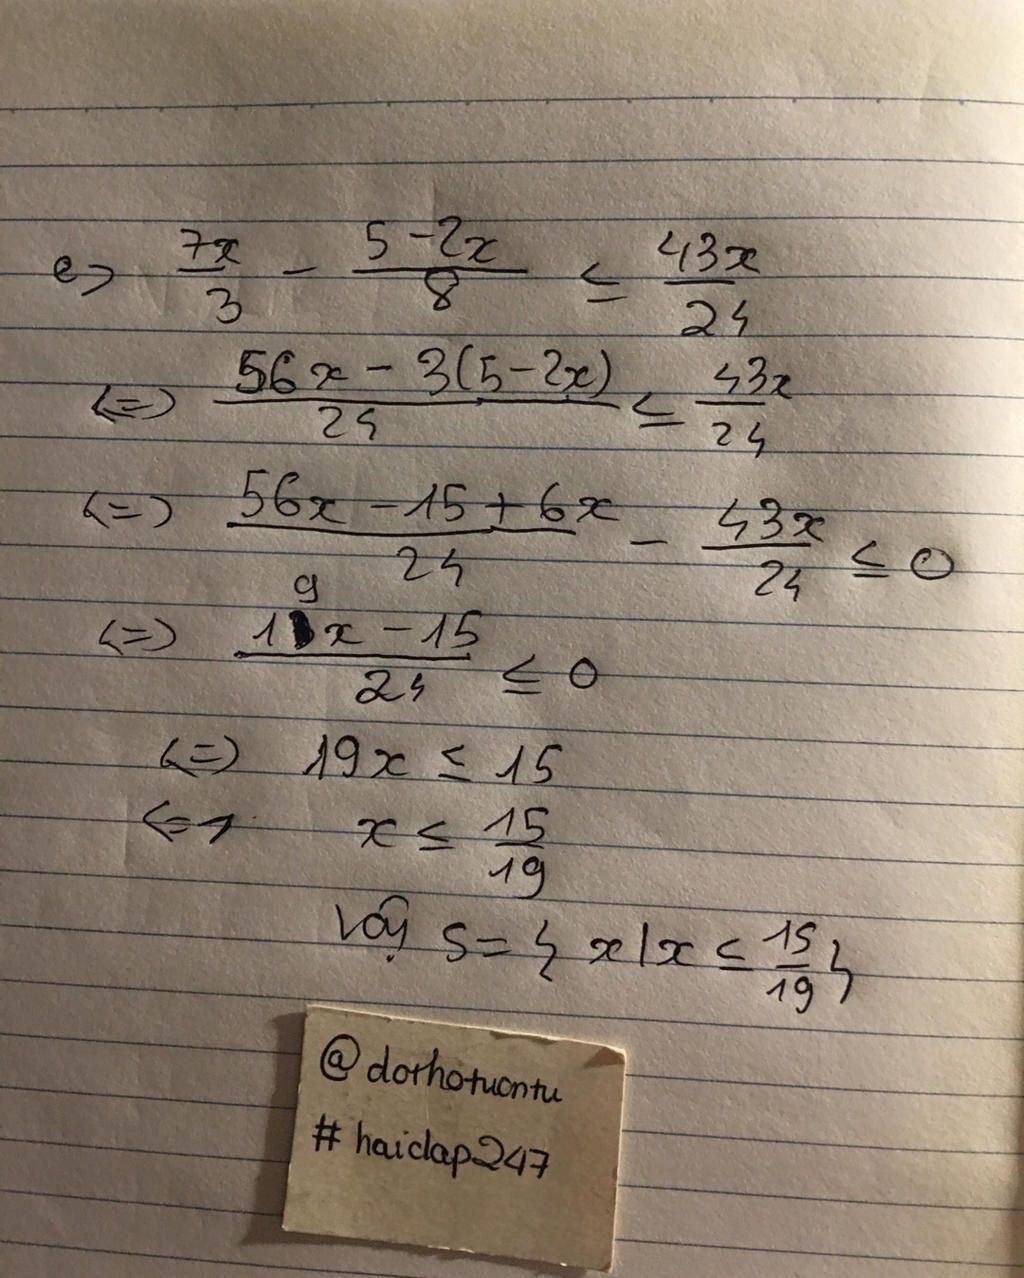 e) 7x/3 - (5-2x)/8 ≤ 43x/24
(=) (56x - 3(5-2x))/24 ≤ 43x/24
(=) (56x - 15 + 6x)/24 - 43x/24 ≤ 0
(=) (19x - 15)/24 ≤ 0
(=) 19x ≤ 15
(=) x ≤ 15/19
Vậy S = { x | x ≤ 15/19 }
@dorhotuontu
# haidap247